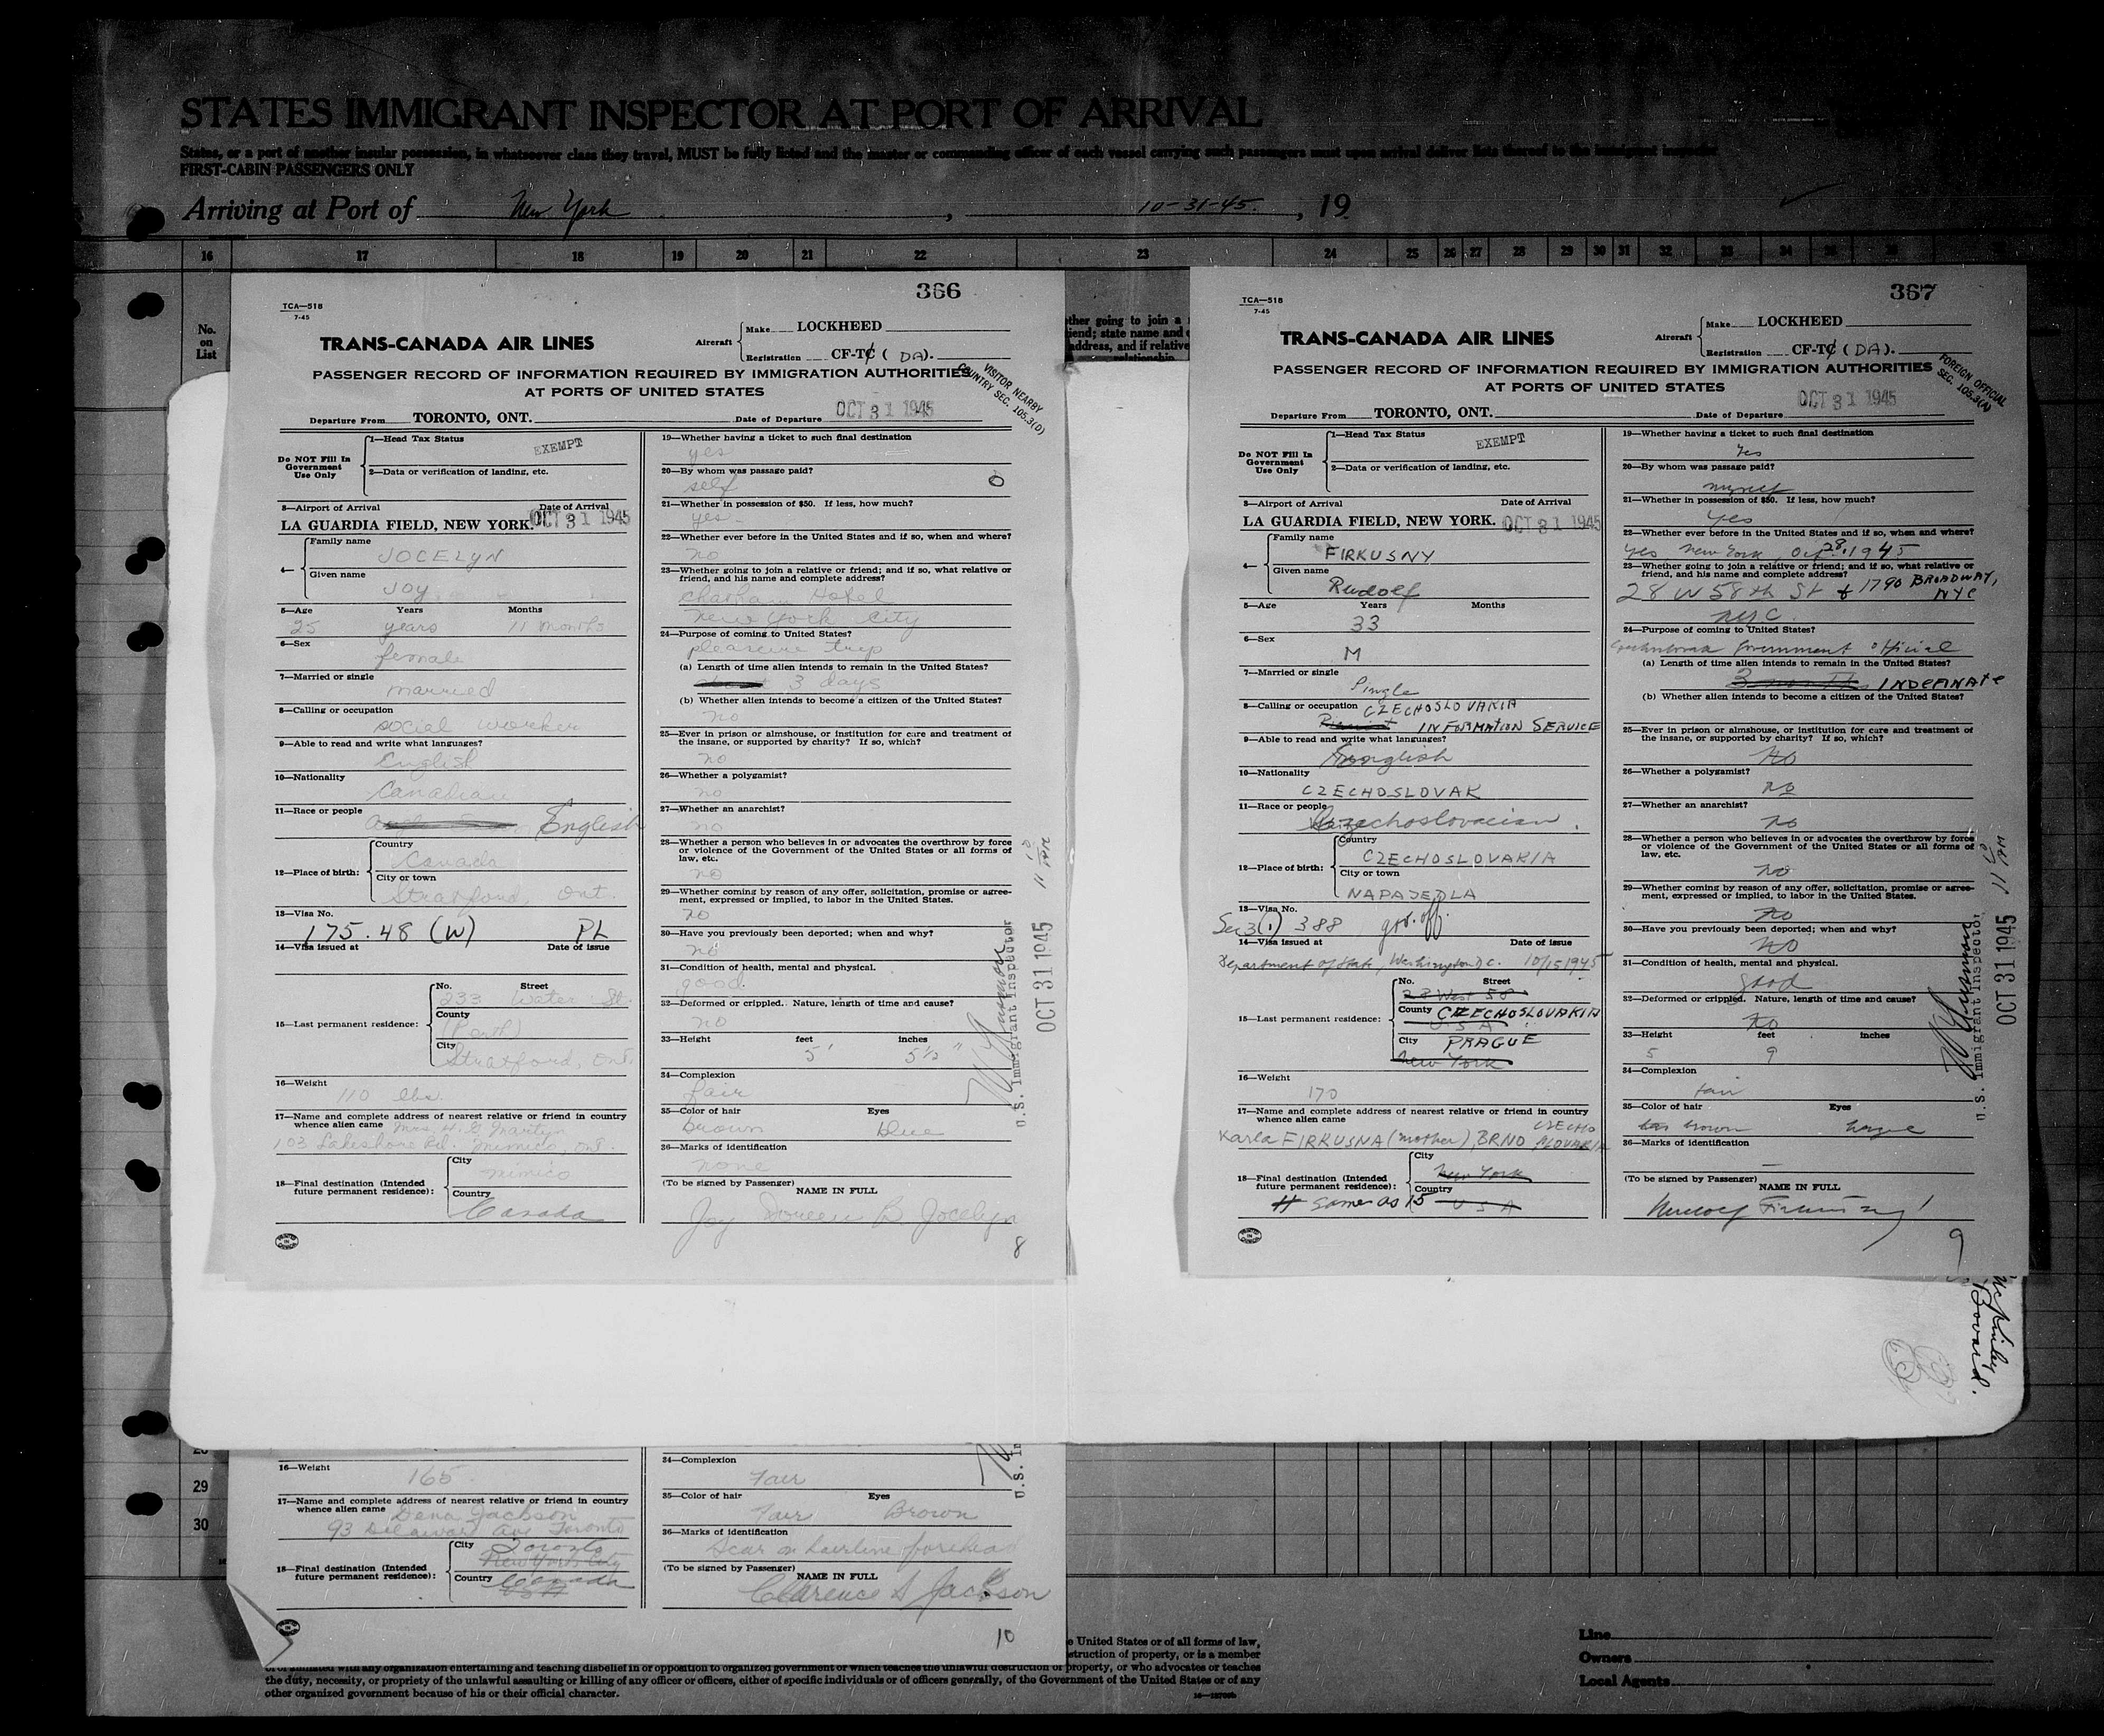 STATES IMMIGRANT INSPECTOR AT PORT OF ARRIVAL
States, or a port of another insular possession, in whatsoever class they travel, MUST be fully listed and the master or commanding officer of each vessel carrying such passengers must upon arrival deliver lists thereof to the immigrant inspector
FIRST-CABIN PASSENGERS ONLY
Arriving at Port of New York , 10-31-45. , 19
16 17 18 19 20 21 22 23 24 25 26 27 28 29 30 31 32 33 34 35 36
No.
on
List
366
TCA—518
7-45
TRANS-CANADA AIR LINES
Aircraft
Make LOCKHEED
Registration CF-TC ( DA).
PASSENGER RECORD OF INFORMATION REQUIRED BY IMMIGRATION AUTHORITIES
AT PORTS OF UNITED STATES
VISITOR NEARBY
COUNTRY SEC. 105.3(D)
Departure From TORONTO, ONT. Date of Departure OCT 31 1945
Do NOT Fill In
Government
Use Only
1—Head Tax Status EXEMPT
2—Data or verification of landing, etc.
3—Airport of Arrival Date of Arrival
LA GUARDIA FIELD, NEW YORK. OCT 31 1945
4—
Family name
JOCELYN
Given name
JOY
5—Age Years Months
25 years 11 months
6—Sex
female
7—Married or single
married
8—Calling or occupation
social worker
9—Able to read and write what languages?
English
10—Nationality
Canadian
11—Race or people
English
12—Place of birth:
Country
Canada
City or town
Stratford, Ont.
13—Visa No.
175.48 (W) PL
14—Visa issued at Date of issue
15—Last permanent residence:
No. Street
233 Water St.
County
(Perth)
City
Stratford, Ont.
16—Weight
110 lbs.
17—Name and complete address of nearest relative or friend in country
whence alien came Mrs. H. G. Martyn
103 Lakeshore Rd. Mimico, Ont.
18—Final destination (Intended
future permanent residence):
City
Mimico
Country
Canada
19—Whether having a ticket to such final destination
yes
20—By whom was passage paid?
self
21—Whether in possession of $50. If less, how much?
yes
22—Whether ever before in the United States and if so, when and where?
no
23—Whether going to join a relative or friend; and if so, what relative or
friend, and his name and complete address?
Chatham Hotel
New York City
24—Purpose of coming to United States?
pleasure trip
(a) Length of time alien intends to remain in the United States?
3 days
(b) Whether alien intends to become a citizen of the United States?
no
25—Ever in prison or almshouse, or institution for care and treatment of
the insane, or supported by charity? If so, which?
no
26—Whether a polygamist?
no
27—Whether an anarchist?
no
28—Whether a person who believes in or advocates the overthrow by force
or violence of the Government of the United States or all forms of
law, etc.
no
29—Whether coming by reason of any offer, solicitation, promise or agree-
ment, expressed or implied, to labor in the United States.
no
30—Have you previously been deported; when and why?
no
31—Condition of health, mental and physical.
good.
32—Deformed or crippled. Nature, length of time and cause?
no
33—Height feet inches
5' 5½"
34—Complexion
fair
35—Color of hair Eyes
brown blue
36—Marks of identification
none
(To be signed by Passenger)
NAME IN FULL
Joy Doreen B Jocelyn
8
U.S. Immigrant Inspector
OCT 31 1945
367
TCA—518
7-45
TRANS-CANADA AIR LINES
Aircraft
Make LOCKHEED
Registration CF-TC ( DA).
PASSENGER RECORD OF INFORMATION REQUIRED BY IMMIGRATION AUTHORITIES
AT PORTS OF UNITED STATES
FOREIGN OFFICIAL
SEC. 105.3(A)
Departure From TORONTO, ONT. Date of Departure OCT 31 1945
Do NOT Fill In
Government
Use Only
1—Head Tax Status EXEMPT
2—Data or verification of landing, etc.
3—Airport of Arrival Date of Arrival
LA GUARDIA FIELD, NEW YORK. OCT 31 1945
4—
Family name
FIRKUSNY
Given name
Rudolf
5—Age Years Months
33
6—Sex
M
7—Married or single
Single
8—Calling or occupation CZECHOSLOVAKIA
Pianist INFORMATION SERVICE
9—Able to read and write what languages?
English
10—Nationality
CZECHOSLOVAK
11—Race or people
Czechoslovacian.
12—Place of birth:
Country
CZECHOSLOVAKIA
City or town
NAPAJEDLA
13—Visa No.
Sec 3(1) 388 gov. off.
14—Visa issued at Date of issue
Department of State, Washington D.C. 10/15 1945
15—Last permanent residence:
No. Street
28 West 58
County CZECHOSLOVAKIA
USA
City PRAGUE
New York
16—Weight
170
17—Name and complete address of nearest relative or friend in country
whence alien came CZECHO
Karla FIRKUSNA (mother), BRNO SLOVAKIA
18—Final destination (Intended
future permanent residence):
City
New York
Country
same as 15 USA
19—Whether having a ticket to such final destination
Yes
20—By whom was passage paid?
myself
21—Whether in possession of $50. If less, how much?
Yes
22—Whether ever before in the United States and if so, when and where?
Yes New York, Oct 28, 1945
23—Whether going to join a relative or friend; and if so, what relative or
friend, and his name and complete address?
28 W 58th St & 1790 BROADWAY,
NYC
24—Purpose of coming to United States?
Czechoslovak Government Official
(a) Length of time alien intends to remain in the United States?
3 months INDEFINATE
(b) Whether alien intends to become a citizen of the United States?
25—Ever in prison or almshouse, or institution for care and treatment of
the insane, or supported by charity? If so, which?
No
26—Whether a polygamist?
No
27—Whether an anarchist?
No
28—Whether a person who believes in or advocates the overthrow by force
or violence of the Government of the United States or all forms of
law, etc.
No
29—Whether coming by reason of any offer, solicitation, promise or agree-
ment, expressed or implied, to labor in the United States.
No
30—Have you previously been deported; when and why?
NO
31—Condition of health, mental and physical.
Good
32—Deformed or crippled. Nature, length of time and cause?
No
33—Height feet inches
5 9
34—Complexion
fair
35—Color of hair Eyes
brown
36—Marks of identification
—
(To be signed by Passenger)
NAME IN FULL
Rudolf Firkusny
9
U.S. Immigrant Inspector
OCT 31 1945
McKinley
Bovard.
29
30
16—Weight
165
17—Name and complete address of nearest relative or friend in country
whence alien came Dena Jackson
93 Delaware Ave Toronto
18—Final destination (Intended
future permanent residence):
City Toronto
New York City
Country Canada
USA
34—Complexion
Fair
35—Color of hair Eyes
Fair Brown
36—Marks of identification
Scar on hairline forehead
(To be signed by Passenger)
NAME IN FULL
Clarence S Jackson
10
e United States or of all forms of law,
struction of property, or is a member
of or affiliated with any organization entertaining and teaching disbelief in or opposition to organized government or which teaches the unlawful destruction of property, or who advocates or teaches
the duty, necessity, or propriety of the unlawful assaulting or killing of any officer or officers, either of specific individuals or of officers generally, of the Government of the United States or of any
other organized government because of his or their official character.
Line
Owners
Local Agents